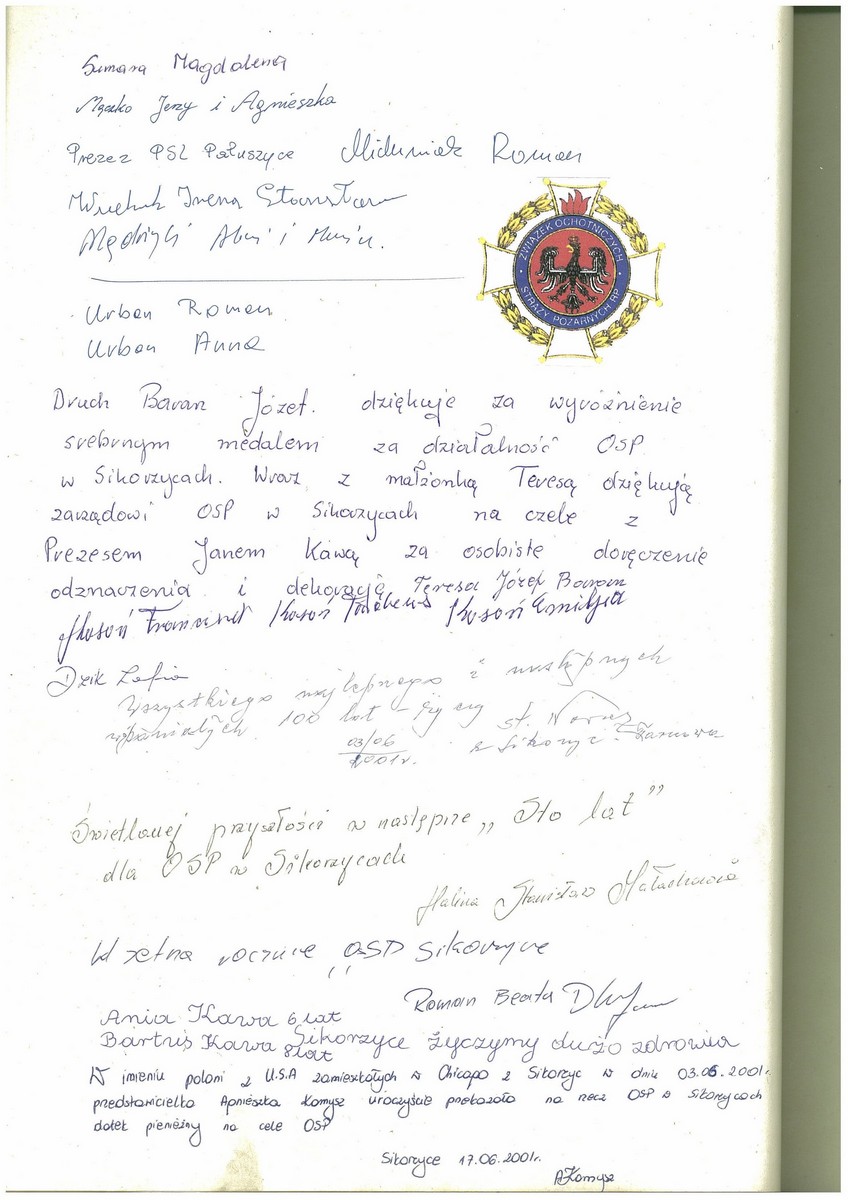 Sumara Magdalena
Mączko Jerzy i Agnieszka
Prezez PSL Pałuszyce Miduniak Roman
Irena Stanisław
i
ZWIĄZEK OCHOTNICZYCH
STRAŻY POŻARNYCH RP
Urban Roman
Urban Anna
Druch Baran Józef. dziękuje za wyróżnienie
srebrnym medalem za działalność OSP
w Sikorzycach. Wraz z małżonką Teresą dziękują
zarządowi OSP w Sikorzycach na czele z
Prezesem Janem Kawą za osobiste doręczenie
odznaczenia i dekorację Teresa Józef Baran
Kosoń Tadeusz Kosoń Emilja
Dzik Zofia
Wszystkiego najlepnego i następnych
wspaniałych 100 lat - życzy st.
03/06
2001r.
z Sikorzyc - Żarnowa
Świetlanej przyszłości w następne „Sto lat”
dla OSP w Sikorzycach
Halina Stanisław
W setną rocznice OSP Sikorzyce
Roman Beata
Ania Kawa 6 lat
Bartuś Kawa 8 lat Sikorzyce życzymy dużo zdrowia
W imieniu poloni z U.S.A zamieszkałych w Chicago z Sikorzyc w dniu 03.06.2001r.
przedstawicielka Agnieszka Komysz uroczyście przekazała na rzecz OSP w Sikorzycach
datek pieniężny na cele OSP
Sikorzyce 17.06.2001r.
AKomysz